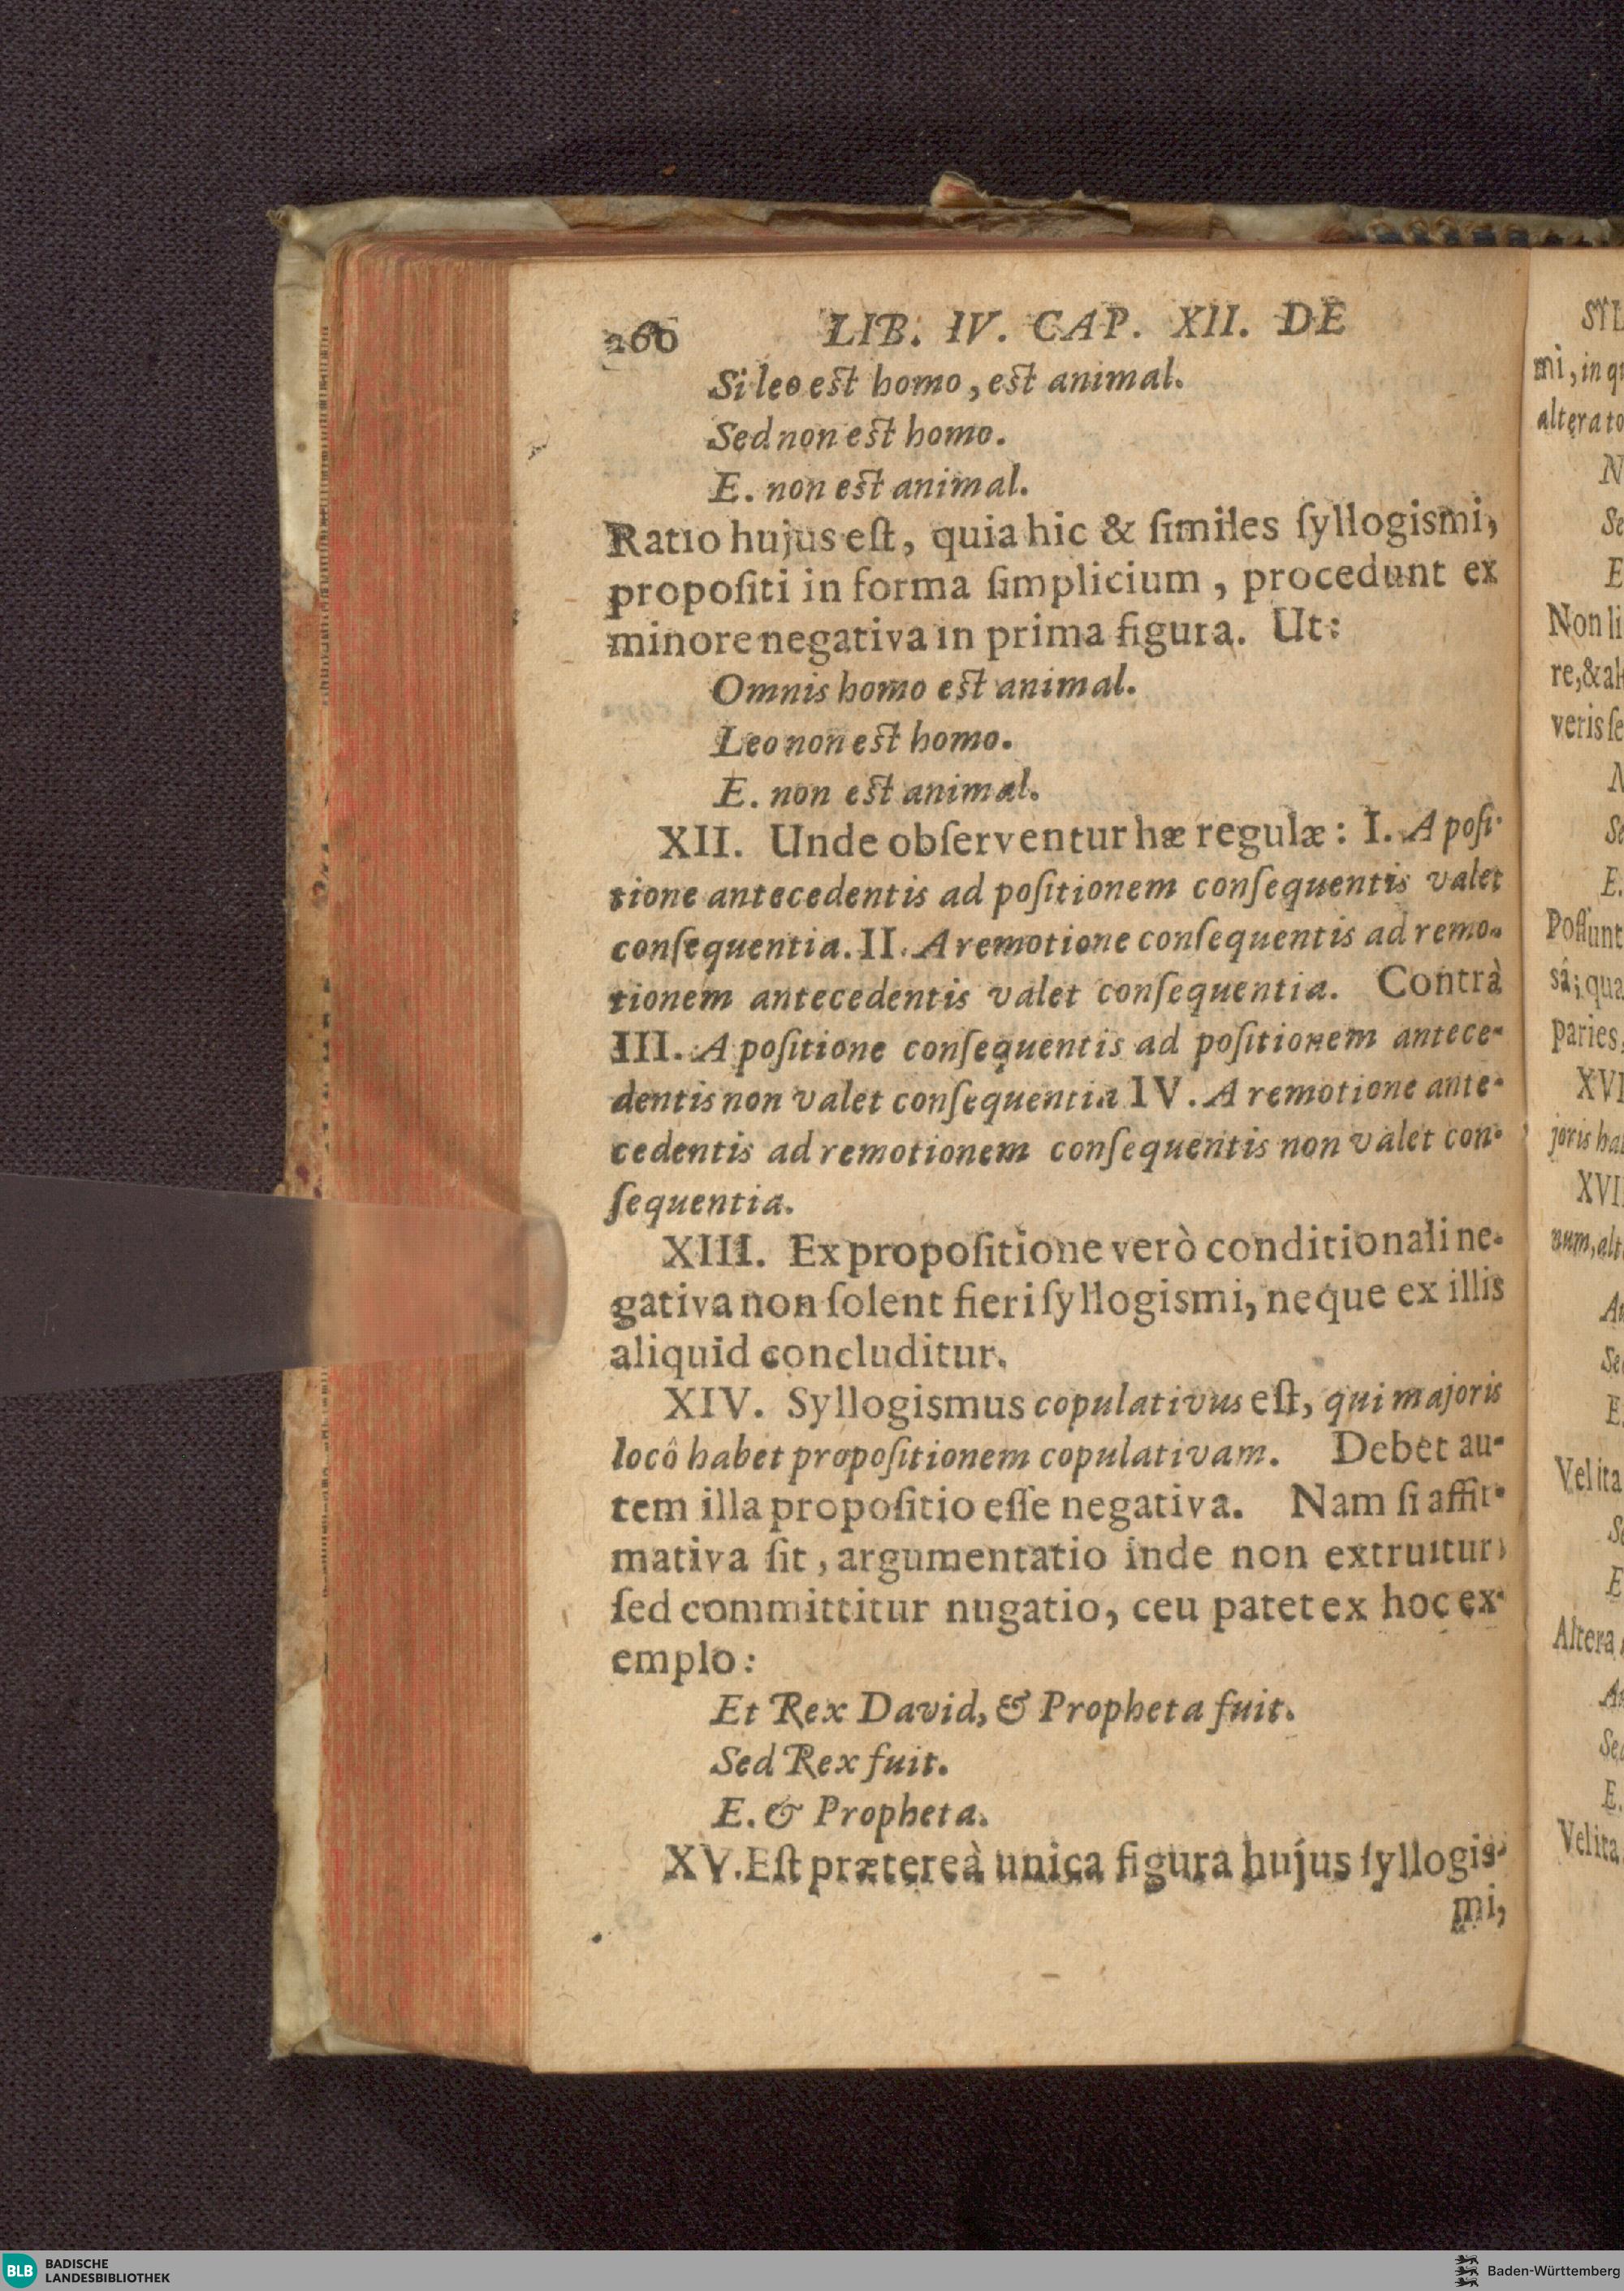 260 LIB. IV. CAP. XII. DE
Si leo eſt homo, eſt animal.
Sed non eſt homo.
E. non eſt animal.
Ratio hujus eſt, quia hic & ſimiles ſyllogismi,
propoſiti in forma ſimplicium, procedunt ex
minore negativa in prima figura. Ut:
Omnis homo eſt animal.
Leo non eſt homo.
E. non eſt animal.
XII. Unde obſerventur hæ regulæ: I. A poſi-
tione antecedentis ad poſitionem conſequentis valet
conſequentia. II. A remotione conſequentis ad remo-
tionem antecedentis valet conſequentia. Contrà
III. A poſitione conſequentis ad poſitionem antece-
dentis non valet conſequentia IV. A remotione ante-
cedentis ad remotionem conſequentis non valet con-
ſequentia.
XIII. Ex propoſitione verò conditionali ne-
gativa non ſolent fieri ſyllogismi, neque ex illis
aliquid concluditur.
XIV. Syllogismus copulativus eſt, qui majoris
locô habet propoſitionem copulativam. Debet au-
tem illa propoſitio eſſe negativa. Nam ſi affir-
mativa ſit, argumentatio inde non extruitur,
ſed committitur nugatio, ceu patet ex hoc ex-
emplo:
Et Rex David, & Propheta fuit.
Sed Rex fuit.
E. & Propheta.
XV. Eſt prætereà unica figura hujus ſyllogis-
mi,
mi, in
Non li
veris
Poſſunt
paries,
Altera
Vel ita
BLB BADISCHE
LANDESBIBLIOTHEK
Baden-Württemberg